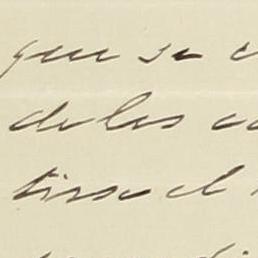 que se
de las
tirse el